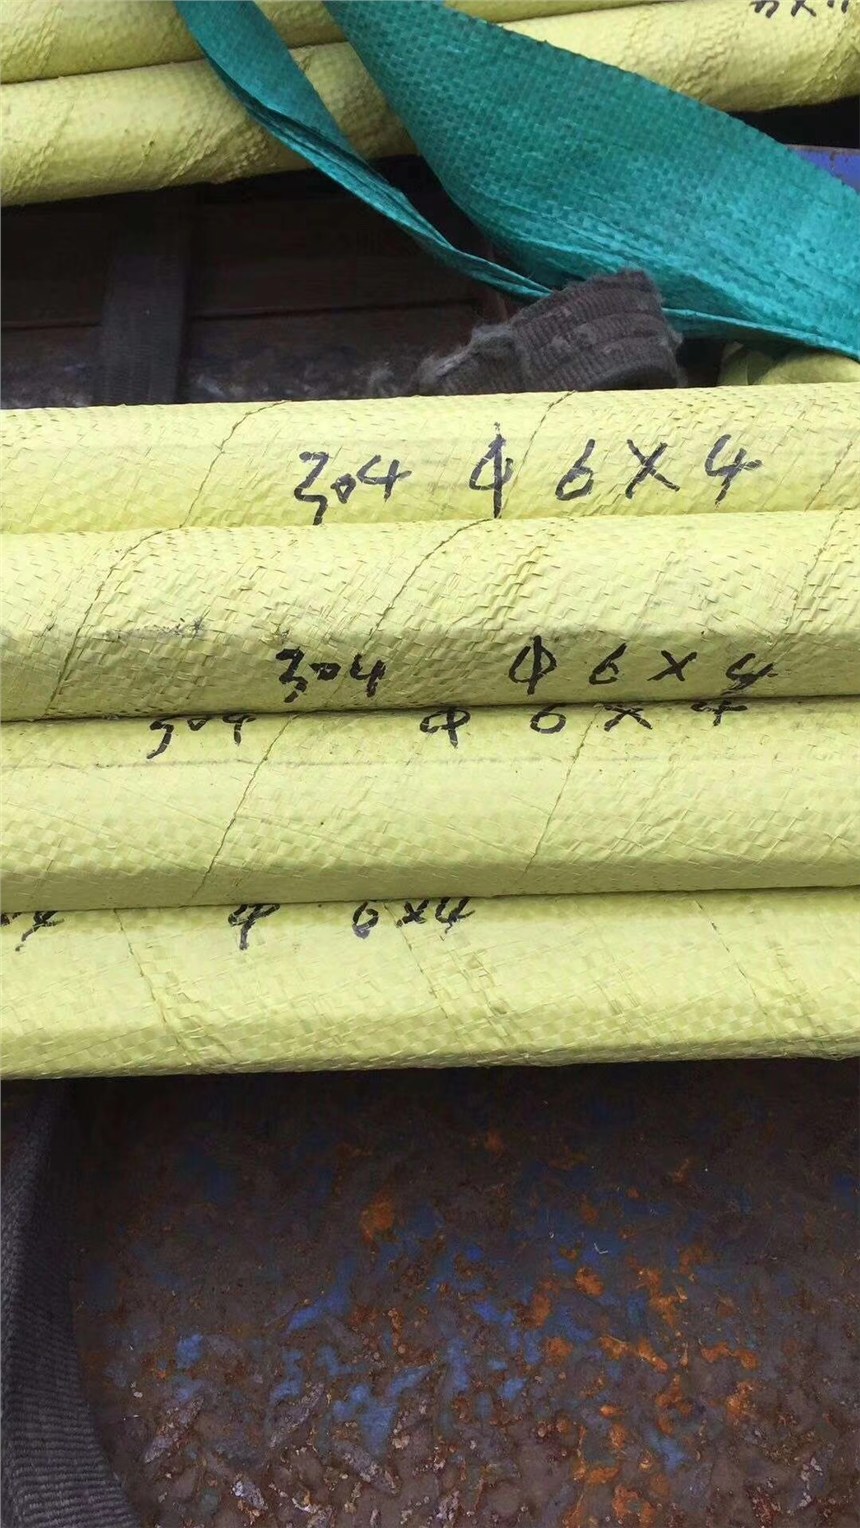 304 Φ 6×4
304 Φ 6×4
304 Φ 6×4
Φ 6×4